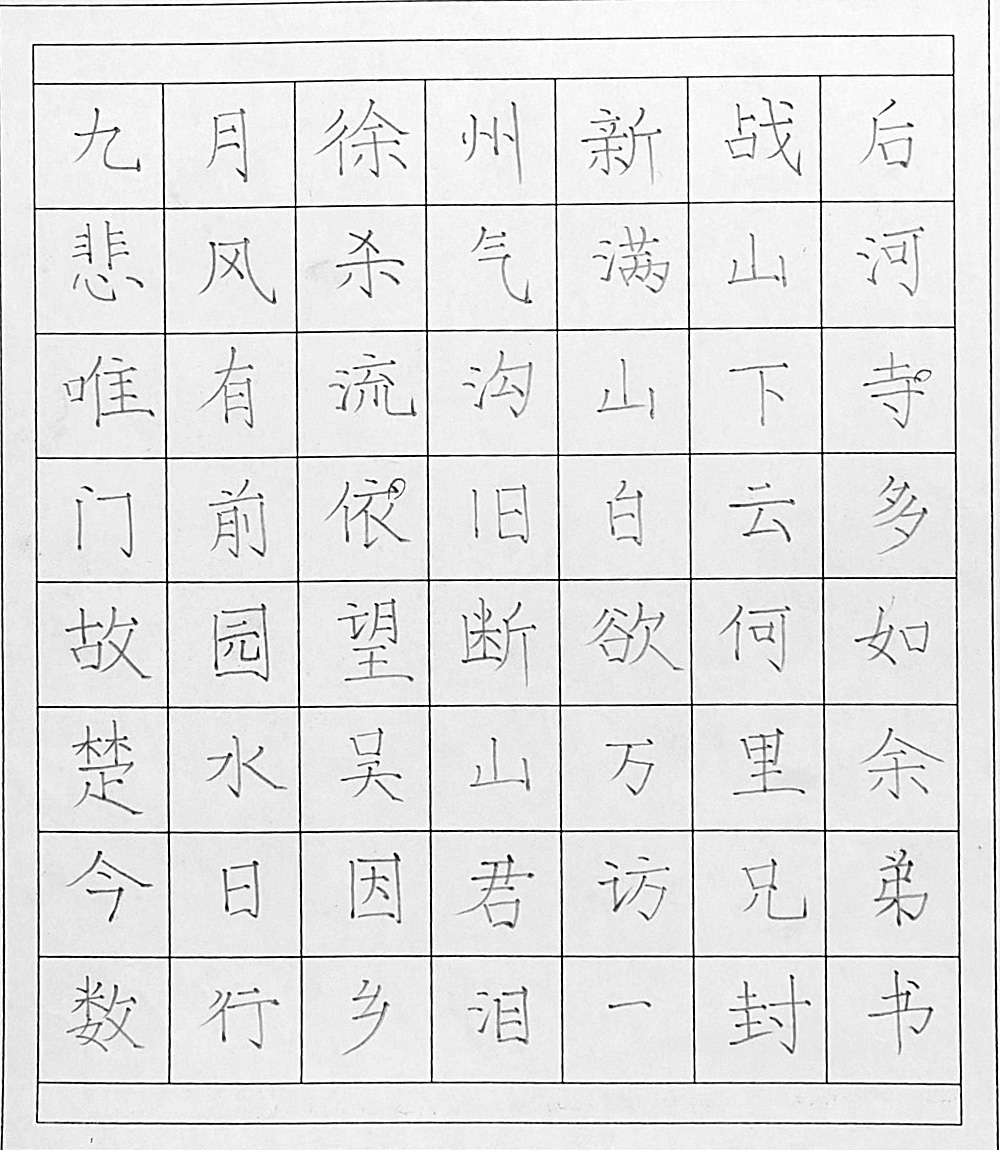 九月徐州新战后
悲风杀气满山河
唯有流沟山下寺
门前依旧白云多
故园望断欲何如
楚水吴山万里余
今日因君访兄弟
数行乡泪一封书